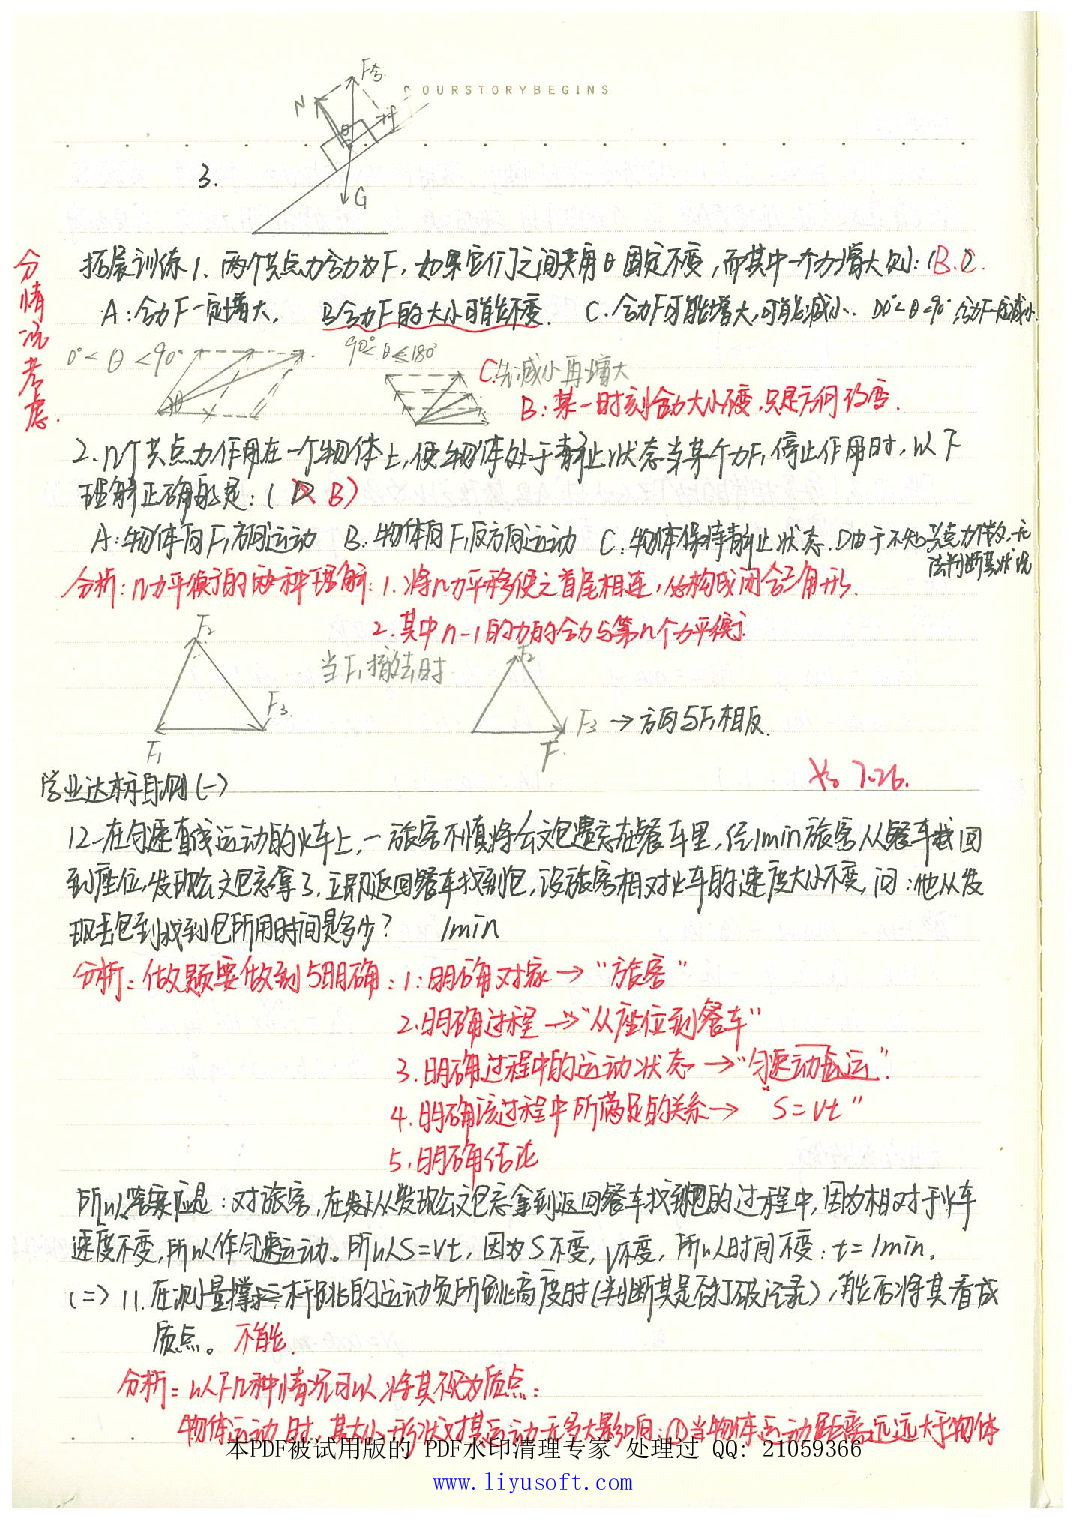 F合
OURSTORYBEGINS
N
f
3.
G
分情况考虑.
拓展训练1. 两个共点力合力为F, 如果它们之间夹角θ固定不变, 而其中一个力增大,则:( B.C.
A:合力F一定增大. B合力F的大小可能不变. C.合力F可能增大,可能减小. D0°<θ<90°合力F一定减小.
0°<θ<90° 90°<θ≤180°
C:先减小再增大
B:某一时刻合力大小不变,只是方向改变.
2.n个共点力作用在一个物体上,使物体处于静止状态当某个力F₁停止作用时,以下
理解正确的是:( D B)
A:物体向F₁方向运动 B.物体向F₁反方向运动 C:物体保持静止状态.D由于不知共点力个数,无
法判断其状况
分析:n力平衡的两种理解:1.将n力平移使之首尾相连,必构成闭合三角形.
2.其中n-1的力的合力与第n个力平衡
F₂
当F₁撤去时
F₂
F₃
F₁
F₃ →方向与F₁相反.
F
学业达标身测(一)
7.26.
12一在匀速直线运动的火车上,一旅客不慎将公文包遗忘在餐车里,经1min旅客从餐车返回
到座位,发现公文包忘拿了,立即返回餐车找到包,设旅客相对火车的速度大小不变,问:他从发
现丢包到找到包所用时间是多少? 1min
分析:做题要做到5明确:1:明确对象→“旅客”
2.明确过程→“从座位到餐车”
3.明确过程中的运动状态→“匀速直运”.
4.明确该过程中所满足的关系→“S=vt”
5.明确结论
所以答案应是:对旅客,在从发现公文包忘拿到返回餐车找到包的过程中,因为相对于火车
速度不变,所以作匀速运动。所以S=vt,因为S不变,v不变,所以时间不变:t=1min.
(二) 11.在测量撑杆跳的运动员所跳高度时(判断其是否打破记录),能否将其看成
质点。 不能.
分析:以下几种情况可以将其视为质点:
物体运动时,其大小形状对其运动无多大影响:①当物体运动距离远远大于物体
本PDF被试用版的 PDF水印清理专家 处理过 QQ: 21059366
www.liyusoft.com